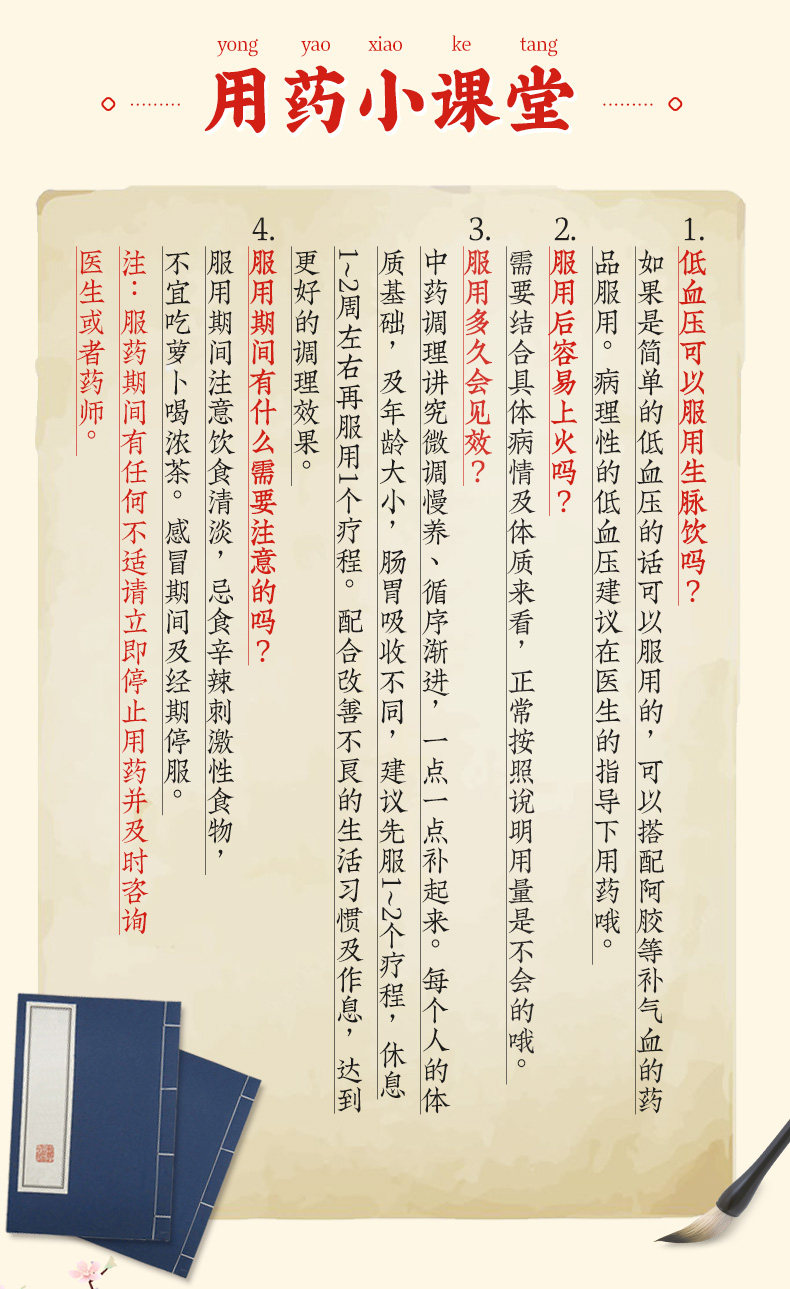 yong yao xiao ke tang
用药小课堂
1.
低血压可以服用生脉饮吗？
如果是简单的低血压的话可以服用的，可以搭配阿胶等补气血的药
品服用。病理性的低血压建议在医生的指导下用药哦。
2.
服用后容易上火吗？
需要结合具体病情及体质来看，正常按照说明用量是不会的哦。
3.
服用多久会见效？
中药调理讲究微调慢养、循序渐进，一点一点补起来。每个人的体
质基础，及年龄大小，肠胃吸收不同，建议先服1~2个疗程，休息
1~2周左右再服用1个疗程。配合改善不良的生活习惯及作息，达到
更好的调理效果。
4.
服用期间有什么需要注意的吗？
服用期间注意饮食清淡，忌食辛辣刺激性食物，
不宜吃萝卜喝浓茶。感冒期间及经期停服。
注：服药期间有任何不适请立即停止用药并及时咨询
医生或者药师。